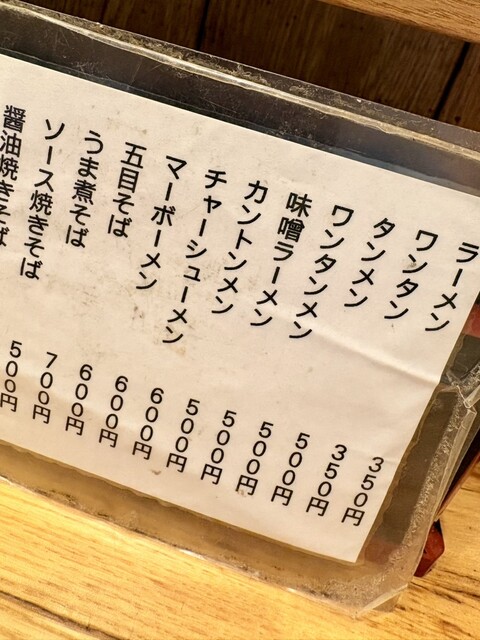 ラーメン 350円
ワンタン 350円
タンメン 500円
ワンタンメン 500円
味噌ラーメン 500円
カントンメン 500円
チャーシューメン 600円
マーボーメン 600円
五目そば 600円
うま煮そば 700円
ソース焼きそば 500円
醤油焼きそば